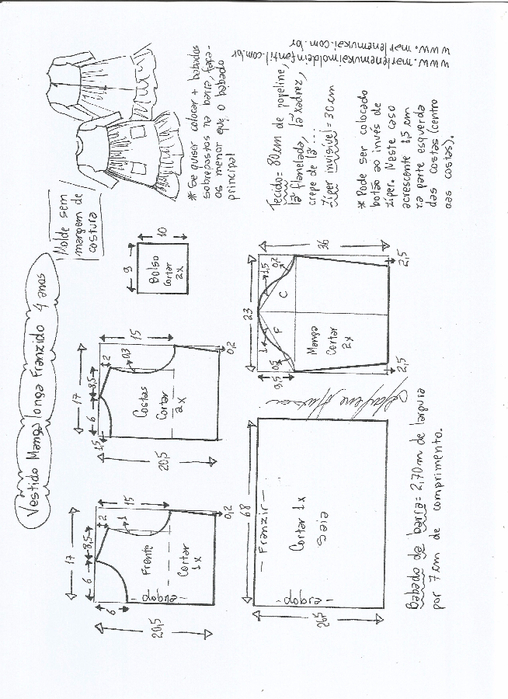 Vestido Manga longa Franzido 4 anos
Molde sem
margem de
costura
* Se quiser colocar + babados
sobrepostos na barra, faça-
os menor que o babado
principal
17
6
8,5
2
15
1
6
Frente
Cortar
1x
dobra
20,5
0,2
17
1,5
6
8,5
2
15
0,3
Costas
Cortar
2x
20,5
0,2
10
9
Bolso
Cortar
2x
Tecido = 80cm de popeline,
lã flanelada, lã xadrez,
crepe de lã ...
Zíper invisível = 30cm
* Pode ser colocado
botão ao invés de
zíper. Neste caso
acrescente 1,5 cm
na parte esquerda
das costas (centro
das costas).
www.marlenemukaimoldeinfantil.com.br
www.marlenemukai.com.br
68
Franzir
Cortar 1x
saia
dobra
26,5
23
36
1,5
0,2
C
F
1
0,5
9,5
Manga
Cortar
2x
2,5
2,5
Marlene Mukai
Babado da barra = 2,70m de largura
por 7cm de comprimento.